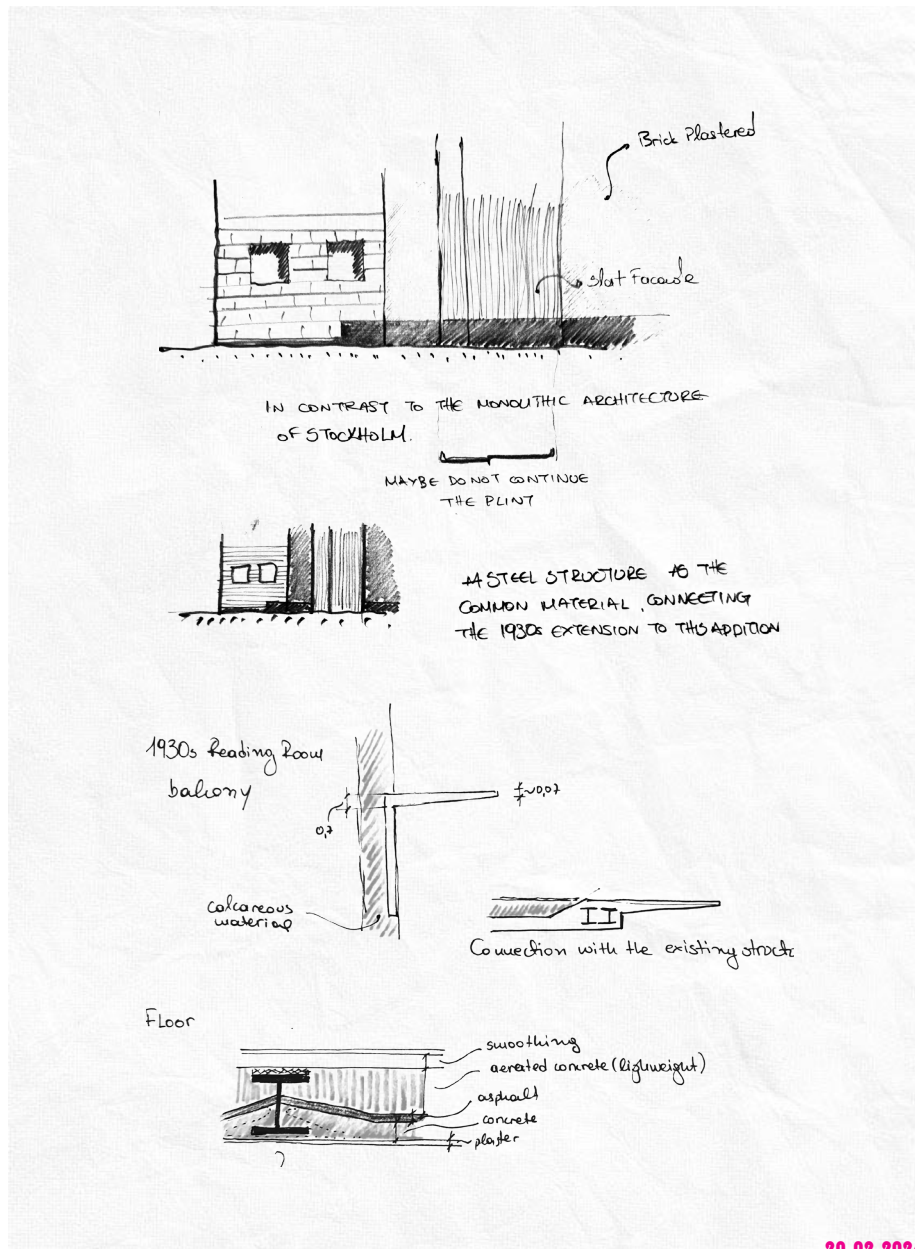 Brick Plastered
slat Facade
IN CONTRAST TO THE MONOLITHIC ARCHITECTURE
OF STOCKHOLM.
MAYBE DO NOT CONTINUE
THE PLINT
STEEL STRUCTURE AS THE
COMMON MATERIAL, CONNECTING
THE 1930s EXTENSION TO THIS ADDITION
1930s Reading Room
balcony
~0,07
0,7
calcareous
material
Connection with the existing struct
FLOOR
smoothing
aereated concrete (lighweight)
asphalt
concrete
plaster
?